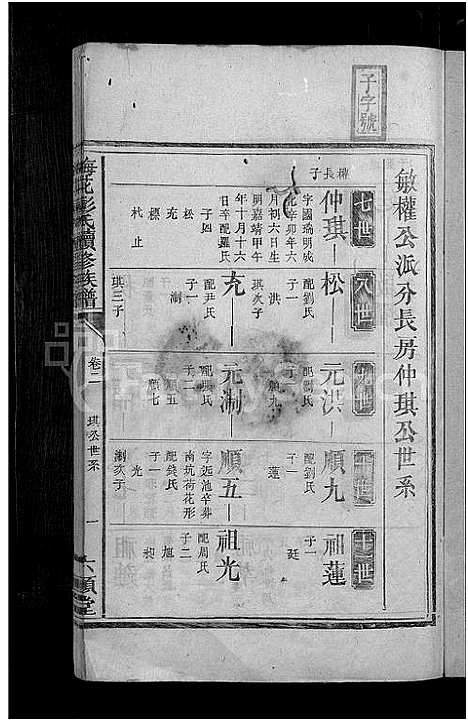 子字號
敏權公派分長房仲琪公世系
七世
八世
九世
十世
十一世
權長子
仲琪
字國瑞明成
化辛卯年六
月初六日生
明嘉靖甲午
年十月十六
日辛配羅氏
子四
松
充
櫟
杕止
松
配劉氏
子一
洪
琪次子
充
配尹氏
子一
淛
琪三子
元洪
配劉氏
子一
順九
元淛
配劉氏
子二
順五
順七
順九
配劉氏
子一
蓮
順五
字近池辛葬
南坑荷花形
配錢氏
子一
光
淛次子
祖蓮
子一
廷
祖光
配周氏
子二
旭
昶
梅花彭氏續修族譜
卷二
琪公世系
一
六順堂